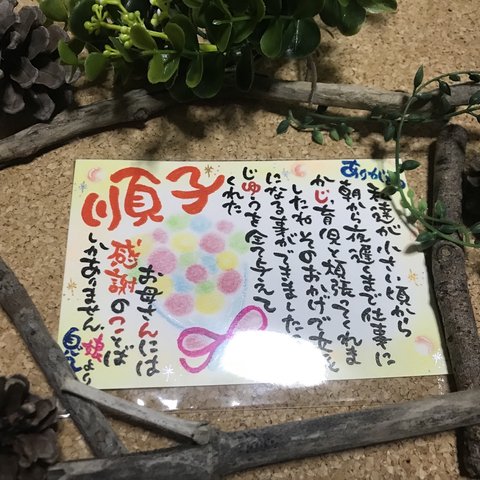 順子
ありがとう
私達が小さい頃から
朝から夜遅くまで仕事に
かじ、育児と頑張ってくれま
したね そのおかげで
になる事ができました。
じゆうを全て与えて
くれた
お母さんには
感謝のことば
しかありません
娘より